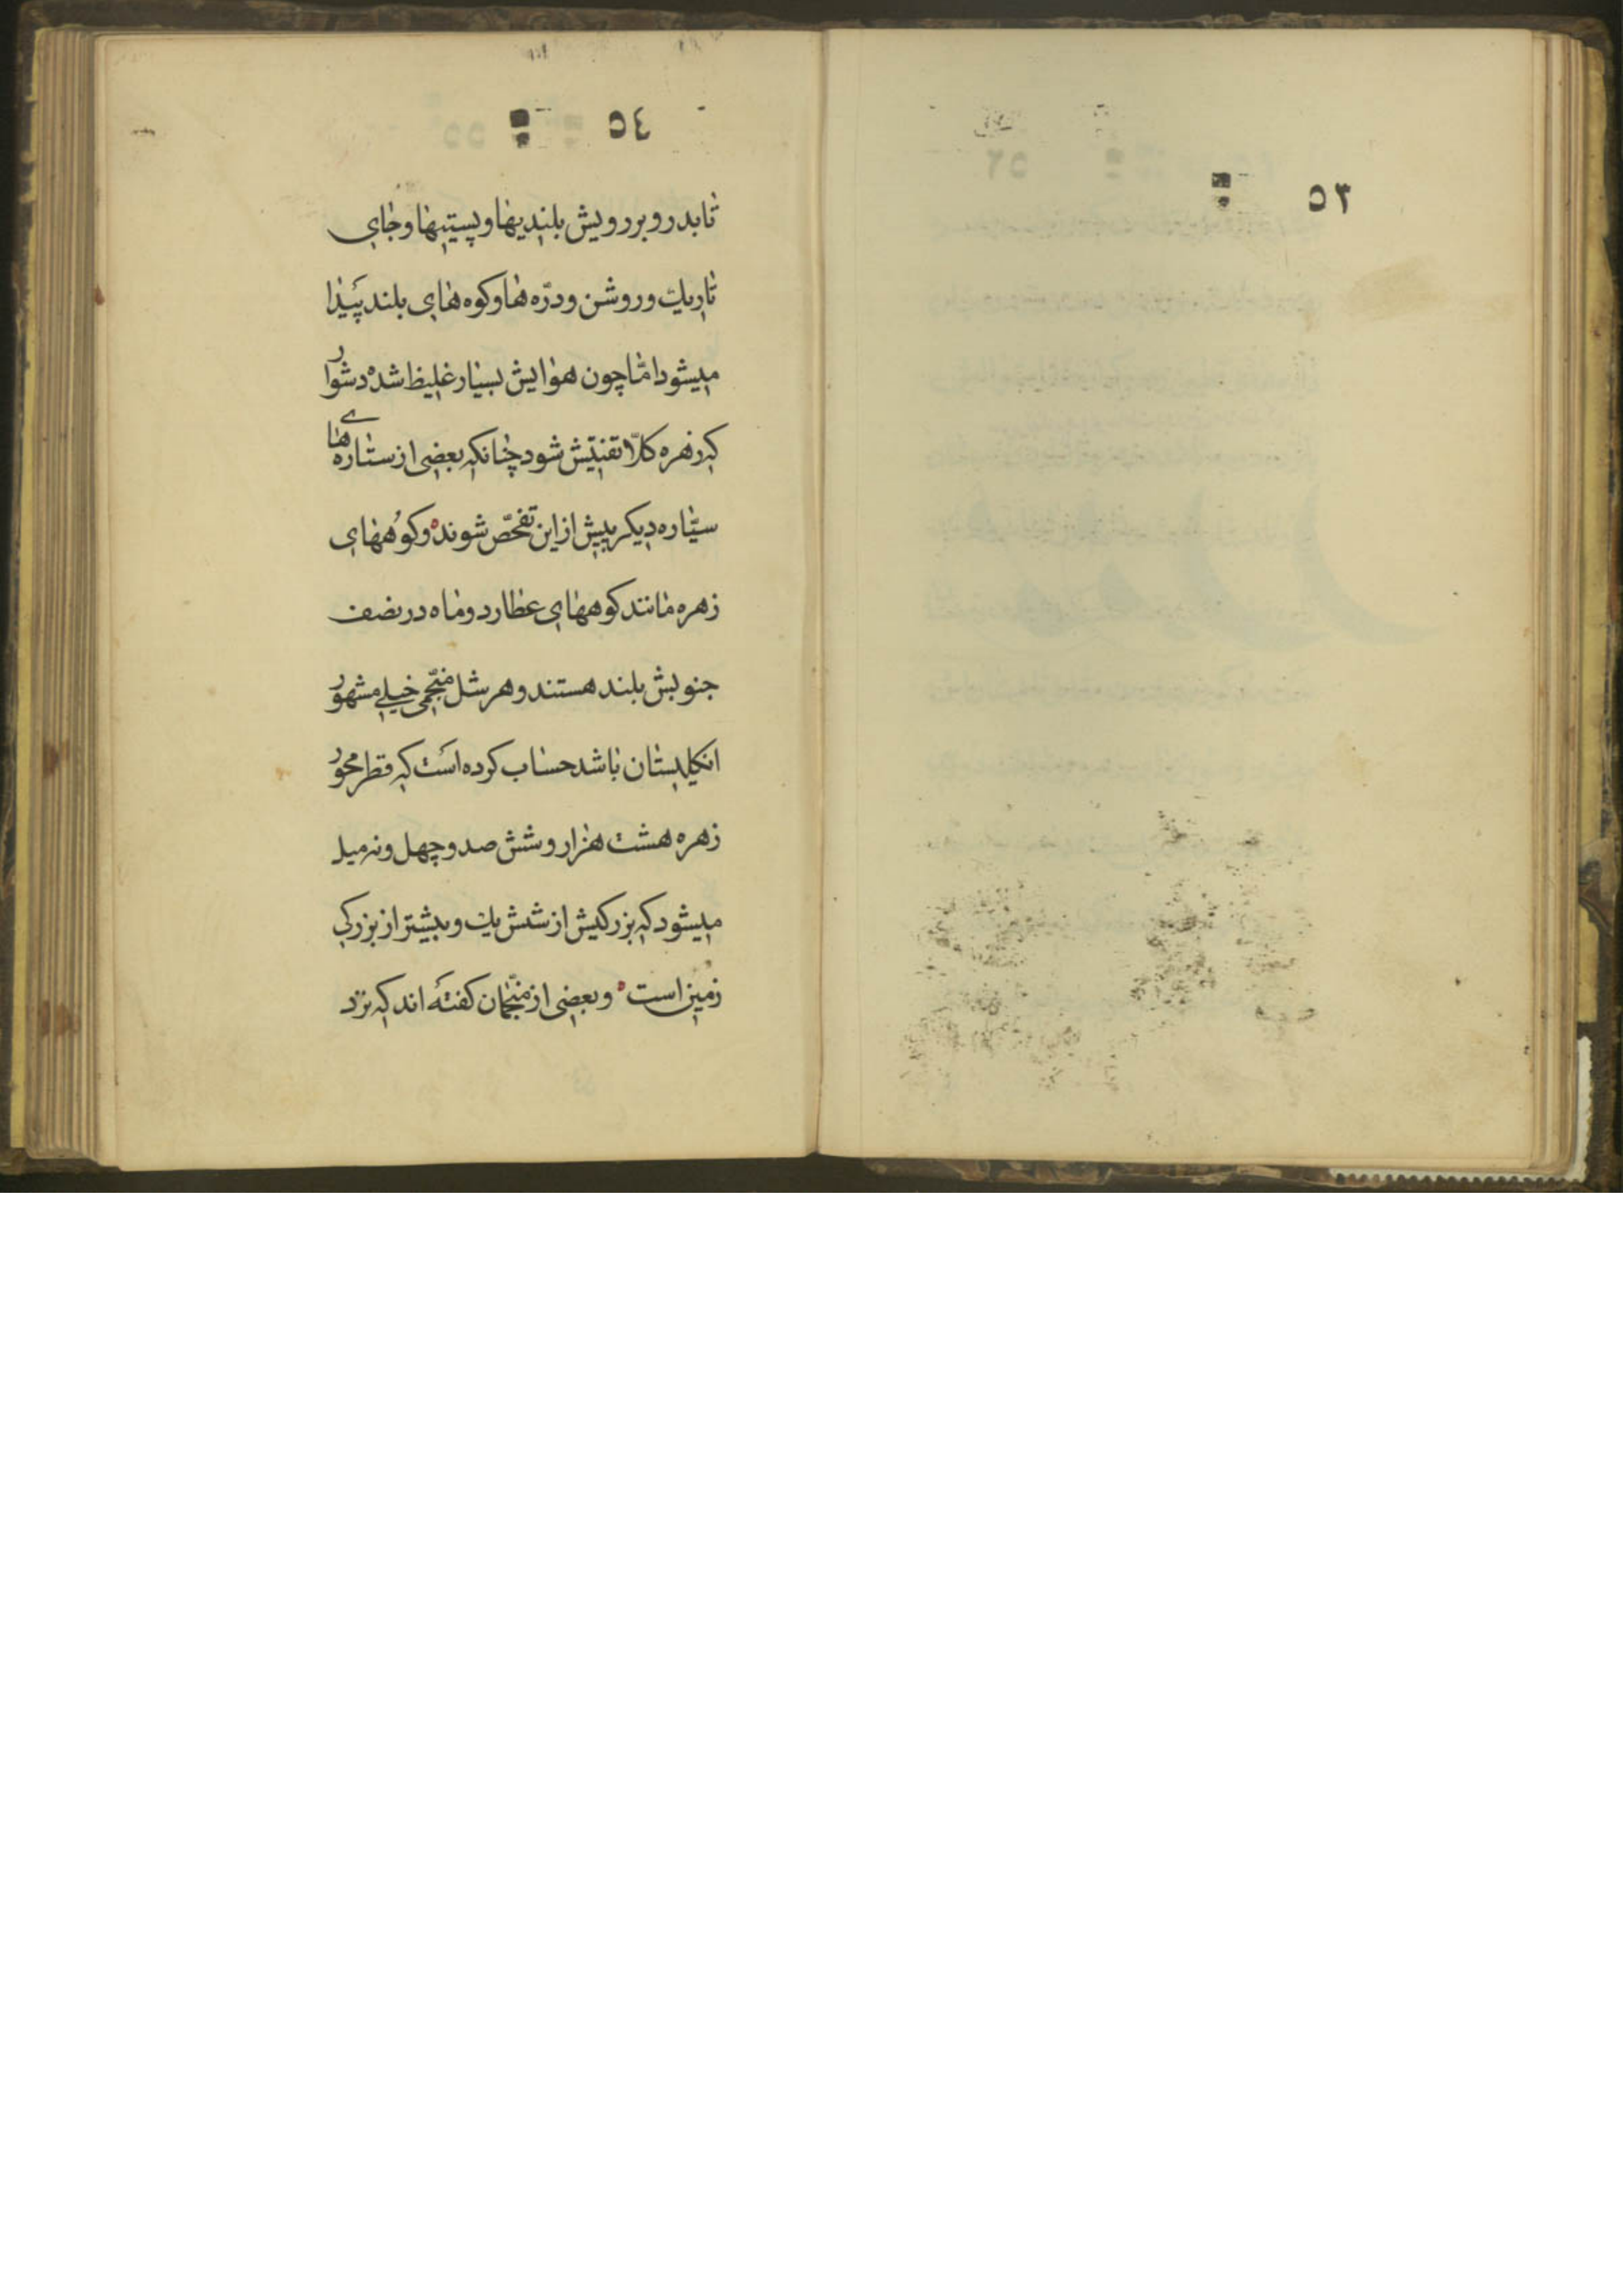 ٥٣
٥٤
تا بدر و بر رویش بلندیها و پستیها و جای
تاریك و روشن و درّه ها و کوه های بلند پیدا
میشود امّا چون هوایش بسیار غلیظ شده دشوار
که زهره کلّا تفتیش شود چنانکه بعضی از ستاره های
سیّاره دیکر پیش از این تفحّص شوند و کوههای
زهره مانند کوههای عطارد و ماه در نصف
جنوبش بلند هستند و هرشل منجّمی خیلی مشهور
انکلیستان باشد حساب کرده است که قطر محور
زهره هشت هزار و شش صد و چهل و نه میل
میشود که بزرکیش از شش یك و بیشتر از بزرکی
زمین است و بعضی از منجّمان کفته اند که نزد